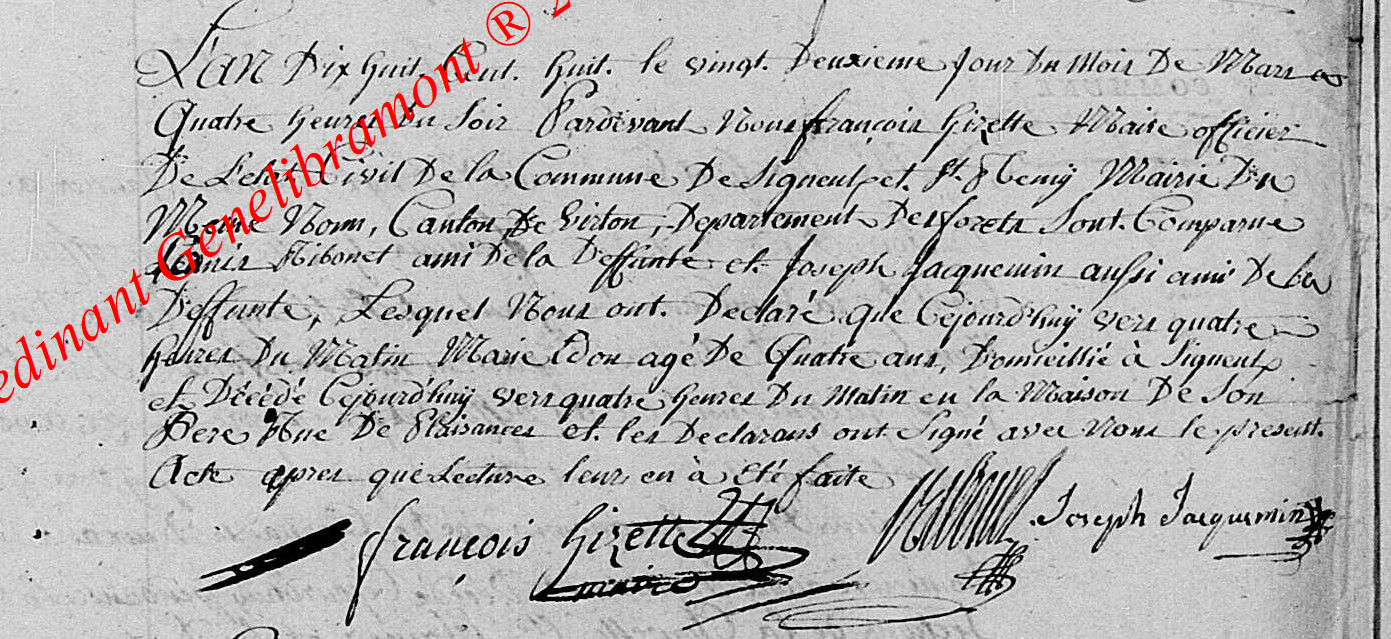 L'an Dix huit. Cent. huit. le vingt. Deuxieme jour Du mois De Mars a
Quatre heures Du soir Pardevant Nous françois Gizette Maire officier
De Letat Civil De la Commune De Signeulx et. St. Remÿ Mairie Du
Même Nom, Canton, De Virton, Departement Des forets Sont. Comparue
Ribonet ami De la Deffunte et. Joseph Jacquemin aussi ami De la
Deffunte, Lesquel Nous ont. Declaré que Cejourd'huÿ vers quatre
heures Du Matin Marie agé De Quatre ans, Domicillié à Signeulx
et Décédé Cejourd'huÿ vers quatre heures Du Matin en la Maison De Son
Pere Rue De Plaisances et. les Declarans ont Signé avec Nous le present.
Acte apres que Lecture leur en à Eté faite
françois Gizette
maire
Joseph Jacquemin
edinant Genelibramont ® 2